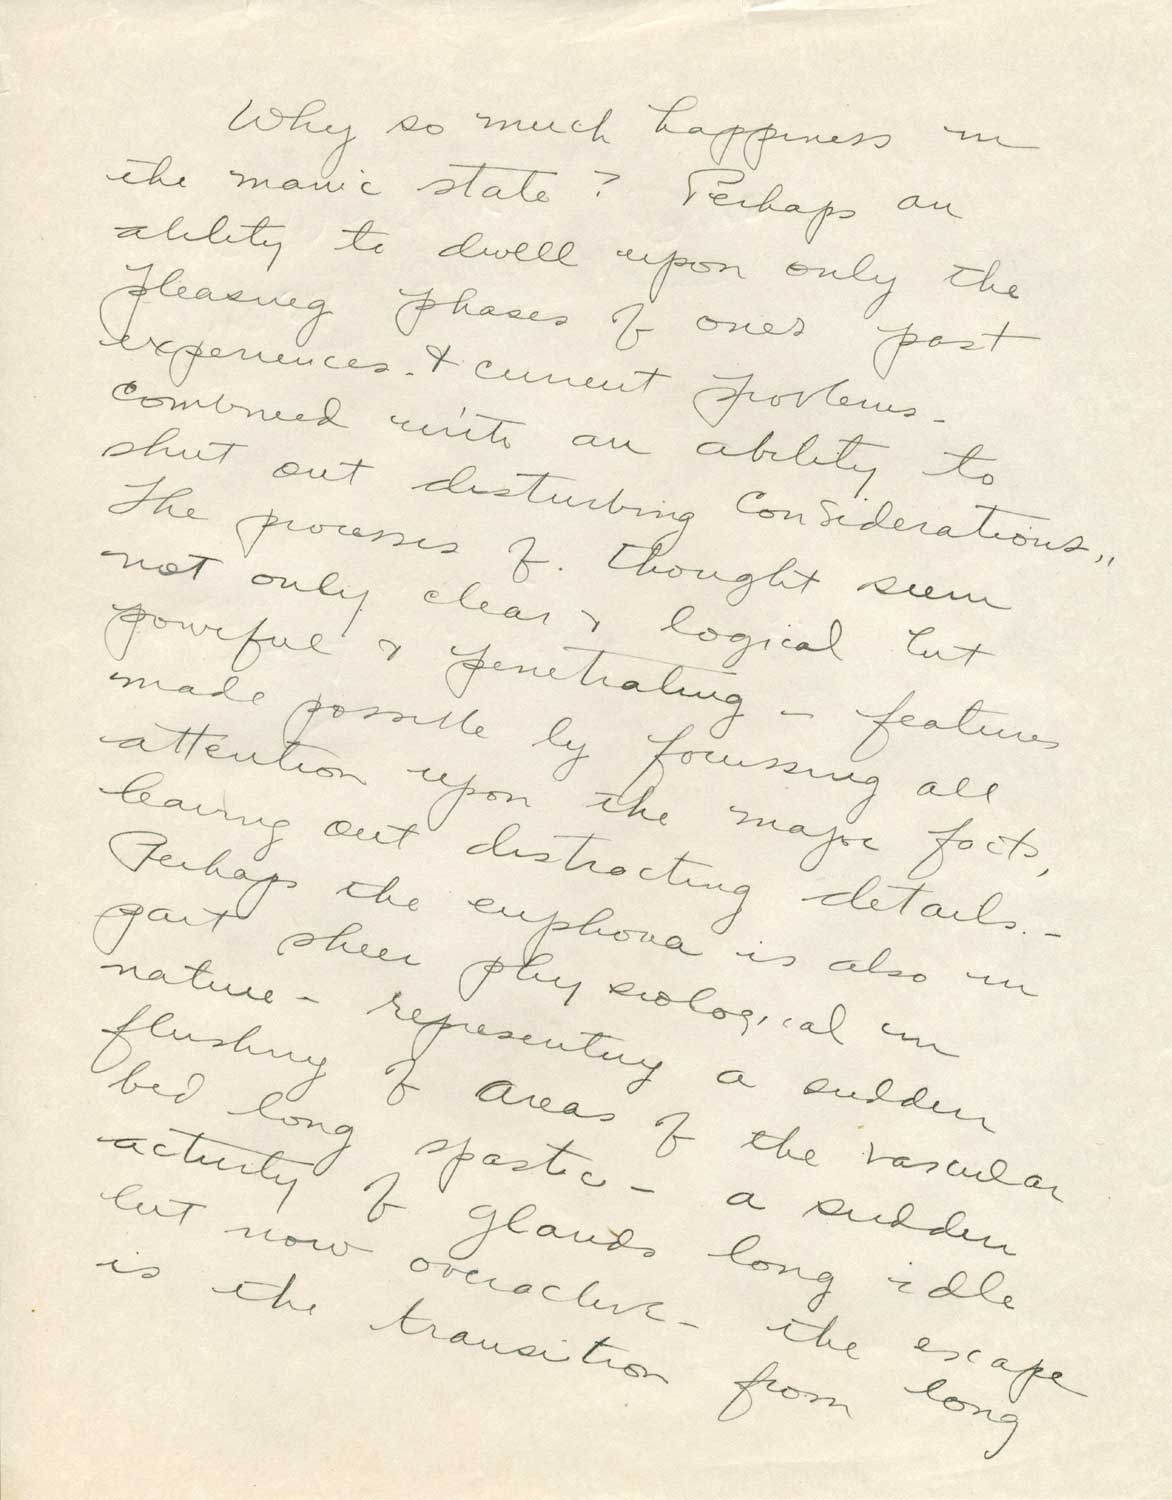 Why so much happiness in
the manic state? Perhaps an
ability to dwell upon only the
pleasing phases of ones past
experiences. & current problems -
combined with an ability to
shut out disturbing considerations,,
The processes of. thought seem
not only clear & logical but
powerful & penetrating - features
made possible by focussing all
attention upon the major facts,
leaving out distracting details. -
Perhaps the euphoria is also in
part sheer physiological in
nature - representing a sudden
flushing of areas of the vascular
bed long spastic - a sudden
activity of glands long idle
but now overactive - the escape
is the transition from long